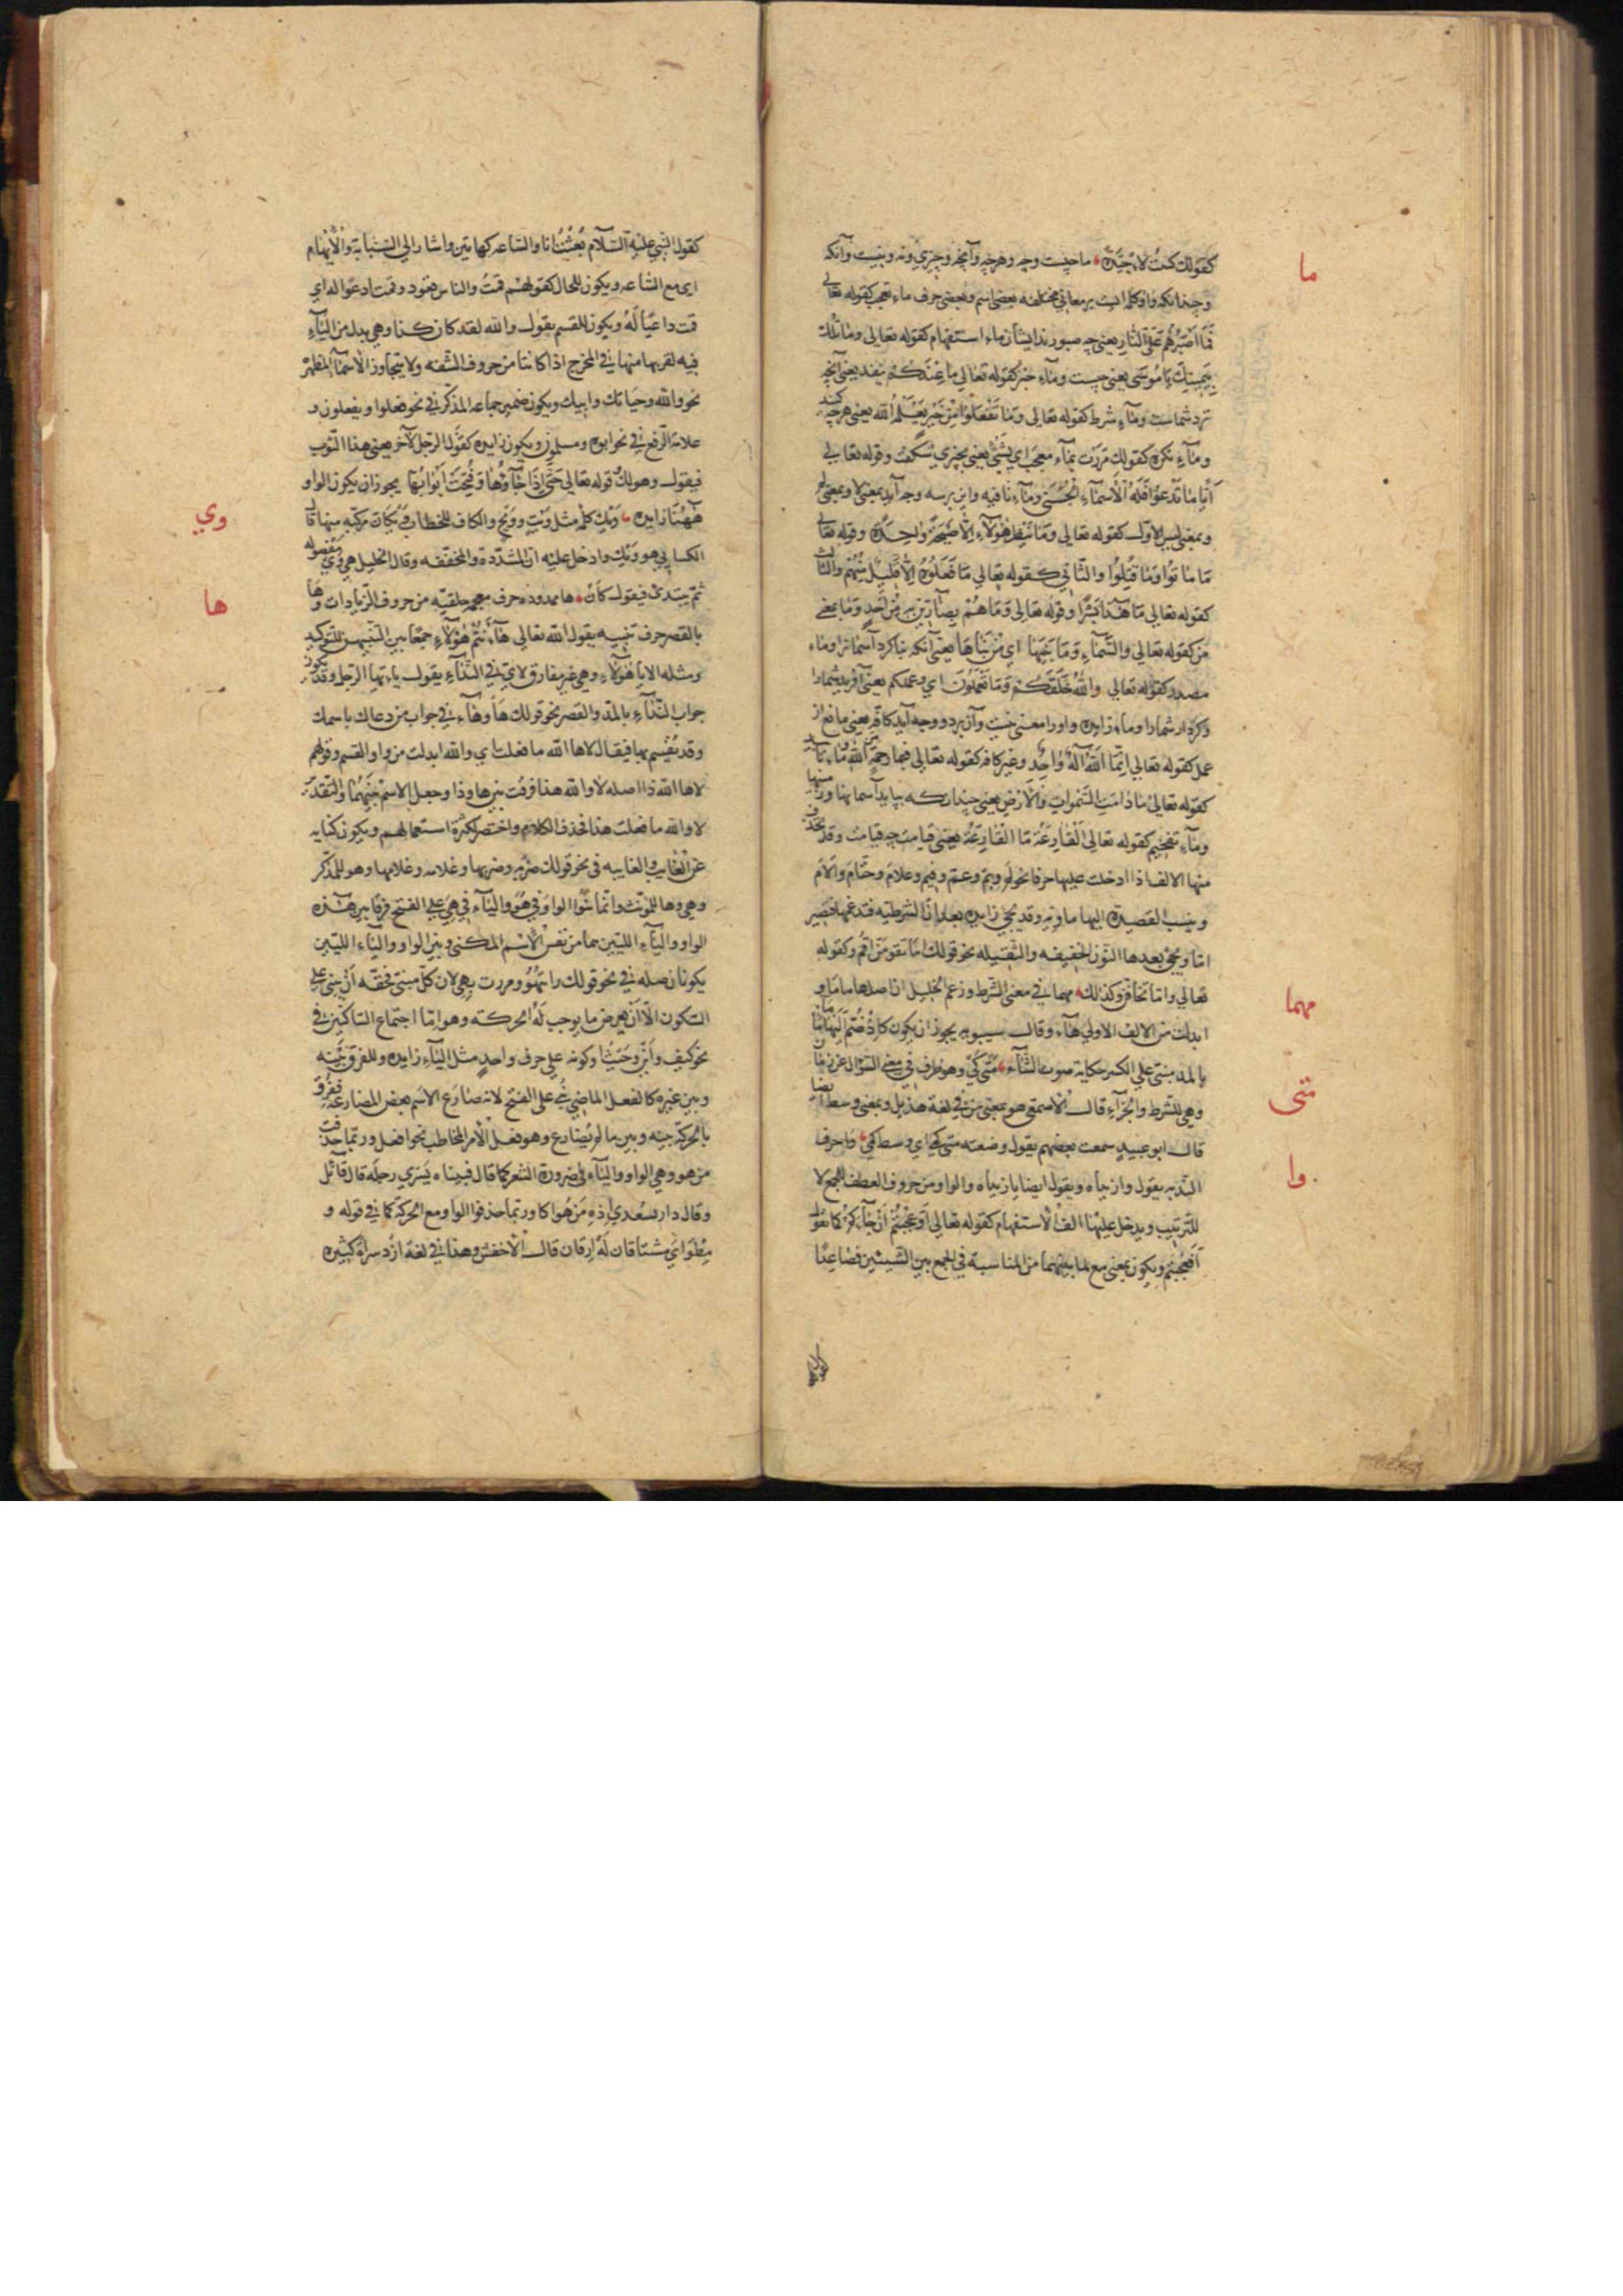 ما
كقولك كنت لاجيده ما چیست وچه وهرچه وآنچه وچیزی ونه ونیست وآنکه
وچندانکه واو كلمه ایست بر معانی مختلفه بعضی اسم وبعضی حرف ماء تعجب کقوله تعالی
فَمَا اَصْبَرَهُمْ عَلَى النَّارِ یعنی چه صبورند ایشان ماء استفهام کقوله تعالی وما تلك
بیمینك یا موسی یعنی چیست وماء خبر کقوله تعالی ما عندکم ینفد یعنی آنچه
نزد شماست وماء شرط کقوله تعالی وما تفعلوا من خیر یعلمه الله یعنی هرچه کنید
وماء نکره کقولك مررت بماء معجب ای بشیء یعنی بچیزی شگفت وقوله تعالی
اَیّا ما تدعوا فله الاسماء الحسنی وماء نافیه واین برسه وجه آید بمعنی لا وبمعنی لم
وبمعنی لیس الاول کقوله تعالی وما ینظر هؤلاء الا صیحة واحدة وقوله تعالی
ما ماتوا وما قتلوا والثانی کقوله تعالی ما فعلوه الا قلیل منهم والثالث
کقوله تعالی ما هذا بشرا وقوله تعالی وما هم بضارین به من احد وما بمعنی
من کقوله تعالی والسماء وما بنیها ای من بناها یعنی آنکه بنا کرد آسمانرا وماء
مصدر کقوله تعالی والله خلقکم وما تعملون ای وعملکم یعنی آفرید شمارا
وکردار شمارا وماء زایده واورا معنی نیست وآن بر دو وجه آید کافه یعنی مانع از
عمل کقوله تعالی انما الله اله واحد وغیر کافه کقوله تعالی فبما رحمة من الله وماء تابید
کقوله تعالی ما دامت السموات والارض یعنی چندان که بپاید آسمانها وزمینها
وماء تفخیم کقوله تعالی القارعة ما القارعة یعنی قیامت چه قیامت وقد یحذف
منها الالف اذا ادخلت علیها حرفا نحو لم وبم وعم وفیم وعلام وحتام والام
وینسب القصیدة الیها ماویه وقد یجیء زایده بعد ان الشرطیه فتدغمها فتصیر
اما ویجیء بعدها النون الخفیفه والثقیله نحو قولك اما تقومن اقم وکقوله
مهما
تعالی واما تخافن وکذلك مهما فی معنی الشرط وزعم الخلیل ان اصلها ماما و
ابدلت من الالف الاولی هاء وقال سیبویه یجوز ان یکون کاذ ضم الیها ما
متی
بالمد مبنی علی الکسر حکایة صوت الشاء متی کی وهو ظرف فی معنی السوال عن زمان
وهی للشرط والجزاء قال الاصمعی هو بمعنی من فی لغة هذیل وبمعنی وسط ایضا
وا
قال ابو عبید سمعت بعضهم یقول وضعته متی کمی ای وسط کمی وا حرف
الندبه یقول وازیداه ویقول ایضا یازیداه والواو من حروف العطف للجمع لا
للترتیب ویدخل علیها الف الاستفهام کقوله تعالی اوعجبتم ان جاءکم کما تقول
افعجبتم ویکون بمعنی مع لما بینهما من المناسبة فی الجمع بین الشیئین فصاعدا
کقول النبی علیه السلام بعثت انا والساعه کهاتین واشار الی السبابة والابهام
ای مع الساعه ویکون للحال کقولهم قمت والناس قعود وقمت ادعواله ای
قمت داعیا له ویکون للقسم یقول والله لقد کان کذا وهی بدل من الباء
فیه لقربها منها فی المخرج اذا کانتا من حروف الشفه ولا یتجاوز الاسماء المظهره
نحو والله وحیاتك وابیك ویکون ضمیر جماعه المذکر فی نحو فعلوا ویفعلون و
علامة الرفع فی نحو ابوه ومسلمون ویکون زایده کقول الرجل لآخر بعنی هذا الثوب
فیقول وهو لك قوله تعالی حتی اذا جاؤها وفتحت ابوابها یجوز ان یکون الواو
وي
ههنا زایده ویك کلمه مثل ویب وویح والکاف للخطاب ویکان مرکبه منها قال
الکسایی هو ویك وادخل علیه ان المشددة والمخففه وقال الخلیل هی وی مفصوله
ها
ثم یبتدئ فیقول کان ها ممدوده حرف معجمه حلقیه من حروف الزیادات وها
بالقصر حرف تنبیه یقول الله تعالی هاانتم هؤلاء جمعا بین التنبیهین للتوکید
ومثله الا یا هؤلاء وهی غیر مفارق لای فی النداء یقول یاایها الرجل وقد یکون
جواب النداء بالمد والقصر نحو قولك ها وهاء فی جواب من دعاك باسمك
وقد یقسم بها فیقال لاها الله ما فعلت ای والله ابدلت من واو القسم وقولهم
لاها الله ذا اصله لا والله هذا فرقت بین ها وذا وجعل الاسم بینهما والتقدیر
لا والله ما فعلت هذا فحذف الکلام واختصر لکثرة استعمالهم ویکون کنایه
عن الغایب والغایبه فی نحو قولك ضربه وضربها وغلامه وغلامها وهو للمذکر
وهی وها للمونث وانما بنوا الواو فی هو والیاء فی هی علی الفتح فرقا بین هذه
الواو والیاء اللتین هما من نفس الاسم المکنی وبین الواو والیاء اللتین
یکونان صله فی نحو قولك رایتهو ومررت بهی لان کل مبنی فحقه ان یبنی علی
السکون الا ان یعرض ما یوجب له الحرکه وهو اما اجتماع الساکنین فی
نحو کیف واین وحیث او کونه علی حرف واحد مثل الباء زایده وللفرق بینه
وبین غیره کالفعل الماضی بنی علی الفتح لانه ضارع الاسم بعض المضارعة ففرق
بالحرکة بینه وبین ما لم یضارع وهو فعل الامر المخاطب نحو افعل وربما حذفت
من هو وهی الواو والیاء فی ضرورة الشعر کما قال فبیناه یشری رحله قال قائل
وقال دار لسعدی اذه من هواکا وربما حذفوا الواو مع الحرکة کما فی قوله و
مطوای مشتاقان له ارقان قال الاخفش وهذا فی لغة ازد سراة کثیره